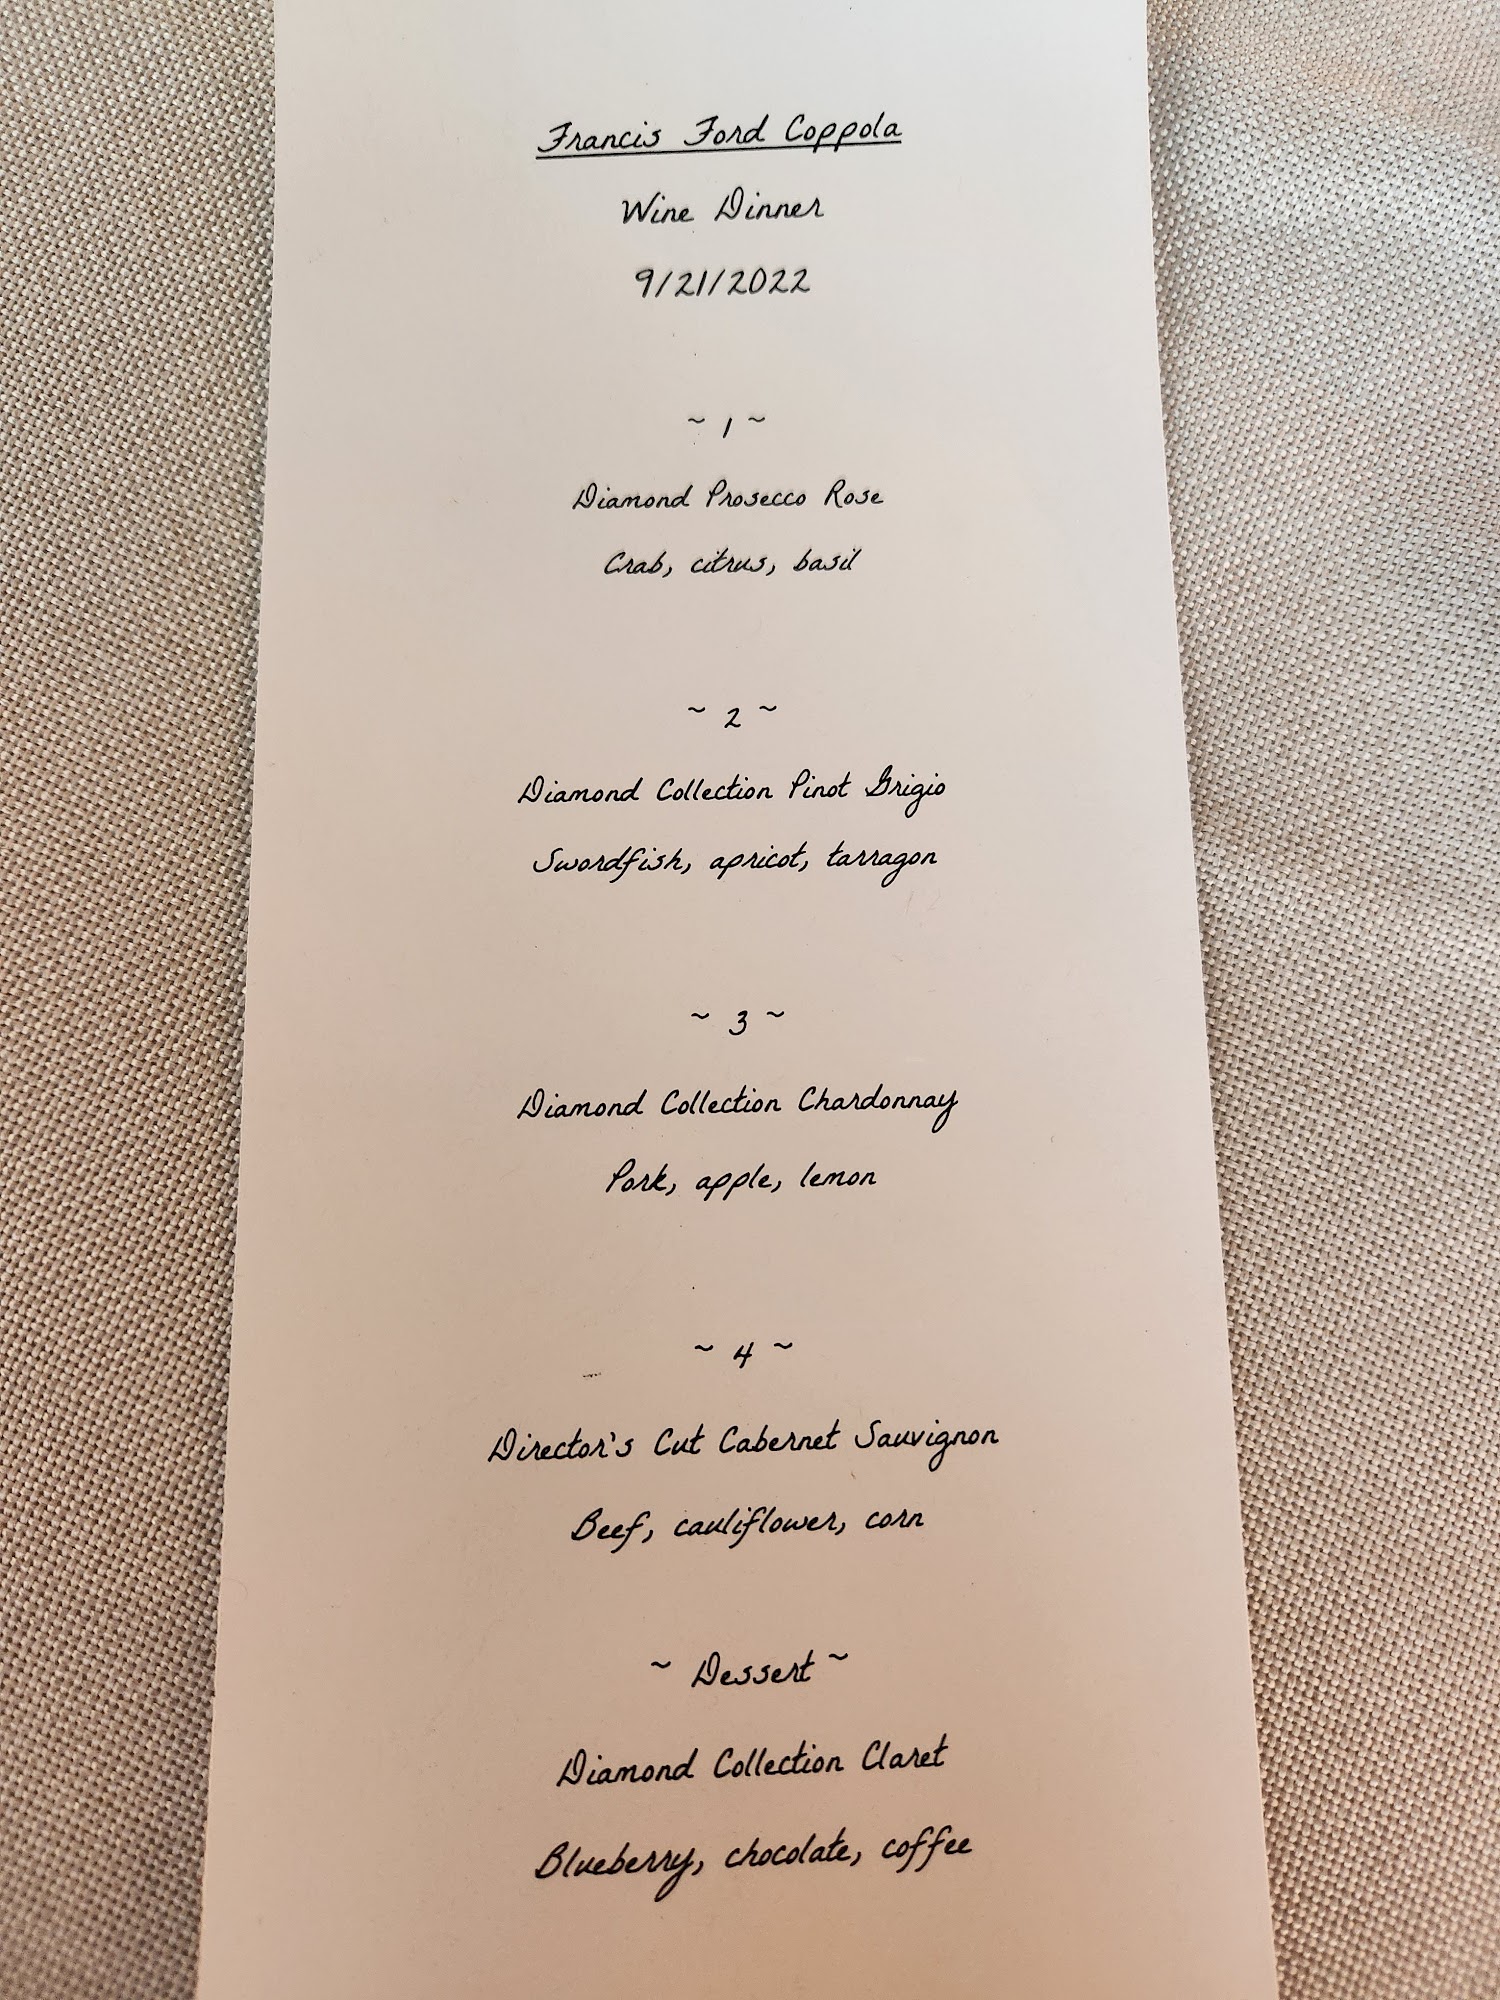 Francis Ford Coppola
Wine Dinner
9/21/2022
~ 1 ~
Diamond Prosecco Rose
Crab, citrus, basil
~ 2 ~
Diamond Collection Pinot Grigio
Swordfish, apricot, tarragon
~ 3 ~
Diamond Collection Chardonnay
Pork, apple, lemon
~ 4 ~
Director's Cut Cabernet Sauvignon
Beef, cauliflower, corn
~ Dessert ~
Diamond Collection Claret
Blueberry, chocolate, coffee